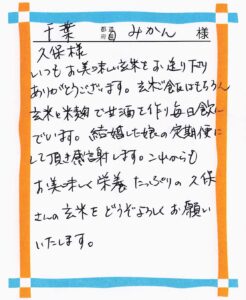 千葉 都道府県 みかん 様
久保様
いつもお美味しい玄米をお送り下り
ありがとうございます。玄米ご飯はもちろん
玄米と米麹で甘酒を作り毎日飲ん
でいます。結婚した娘の定期便に
して頂き感謝します。これからも
お美味しく栄養たっぷりの久保
さんの玄米をどうぞよろしくお願い
いたします。